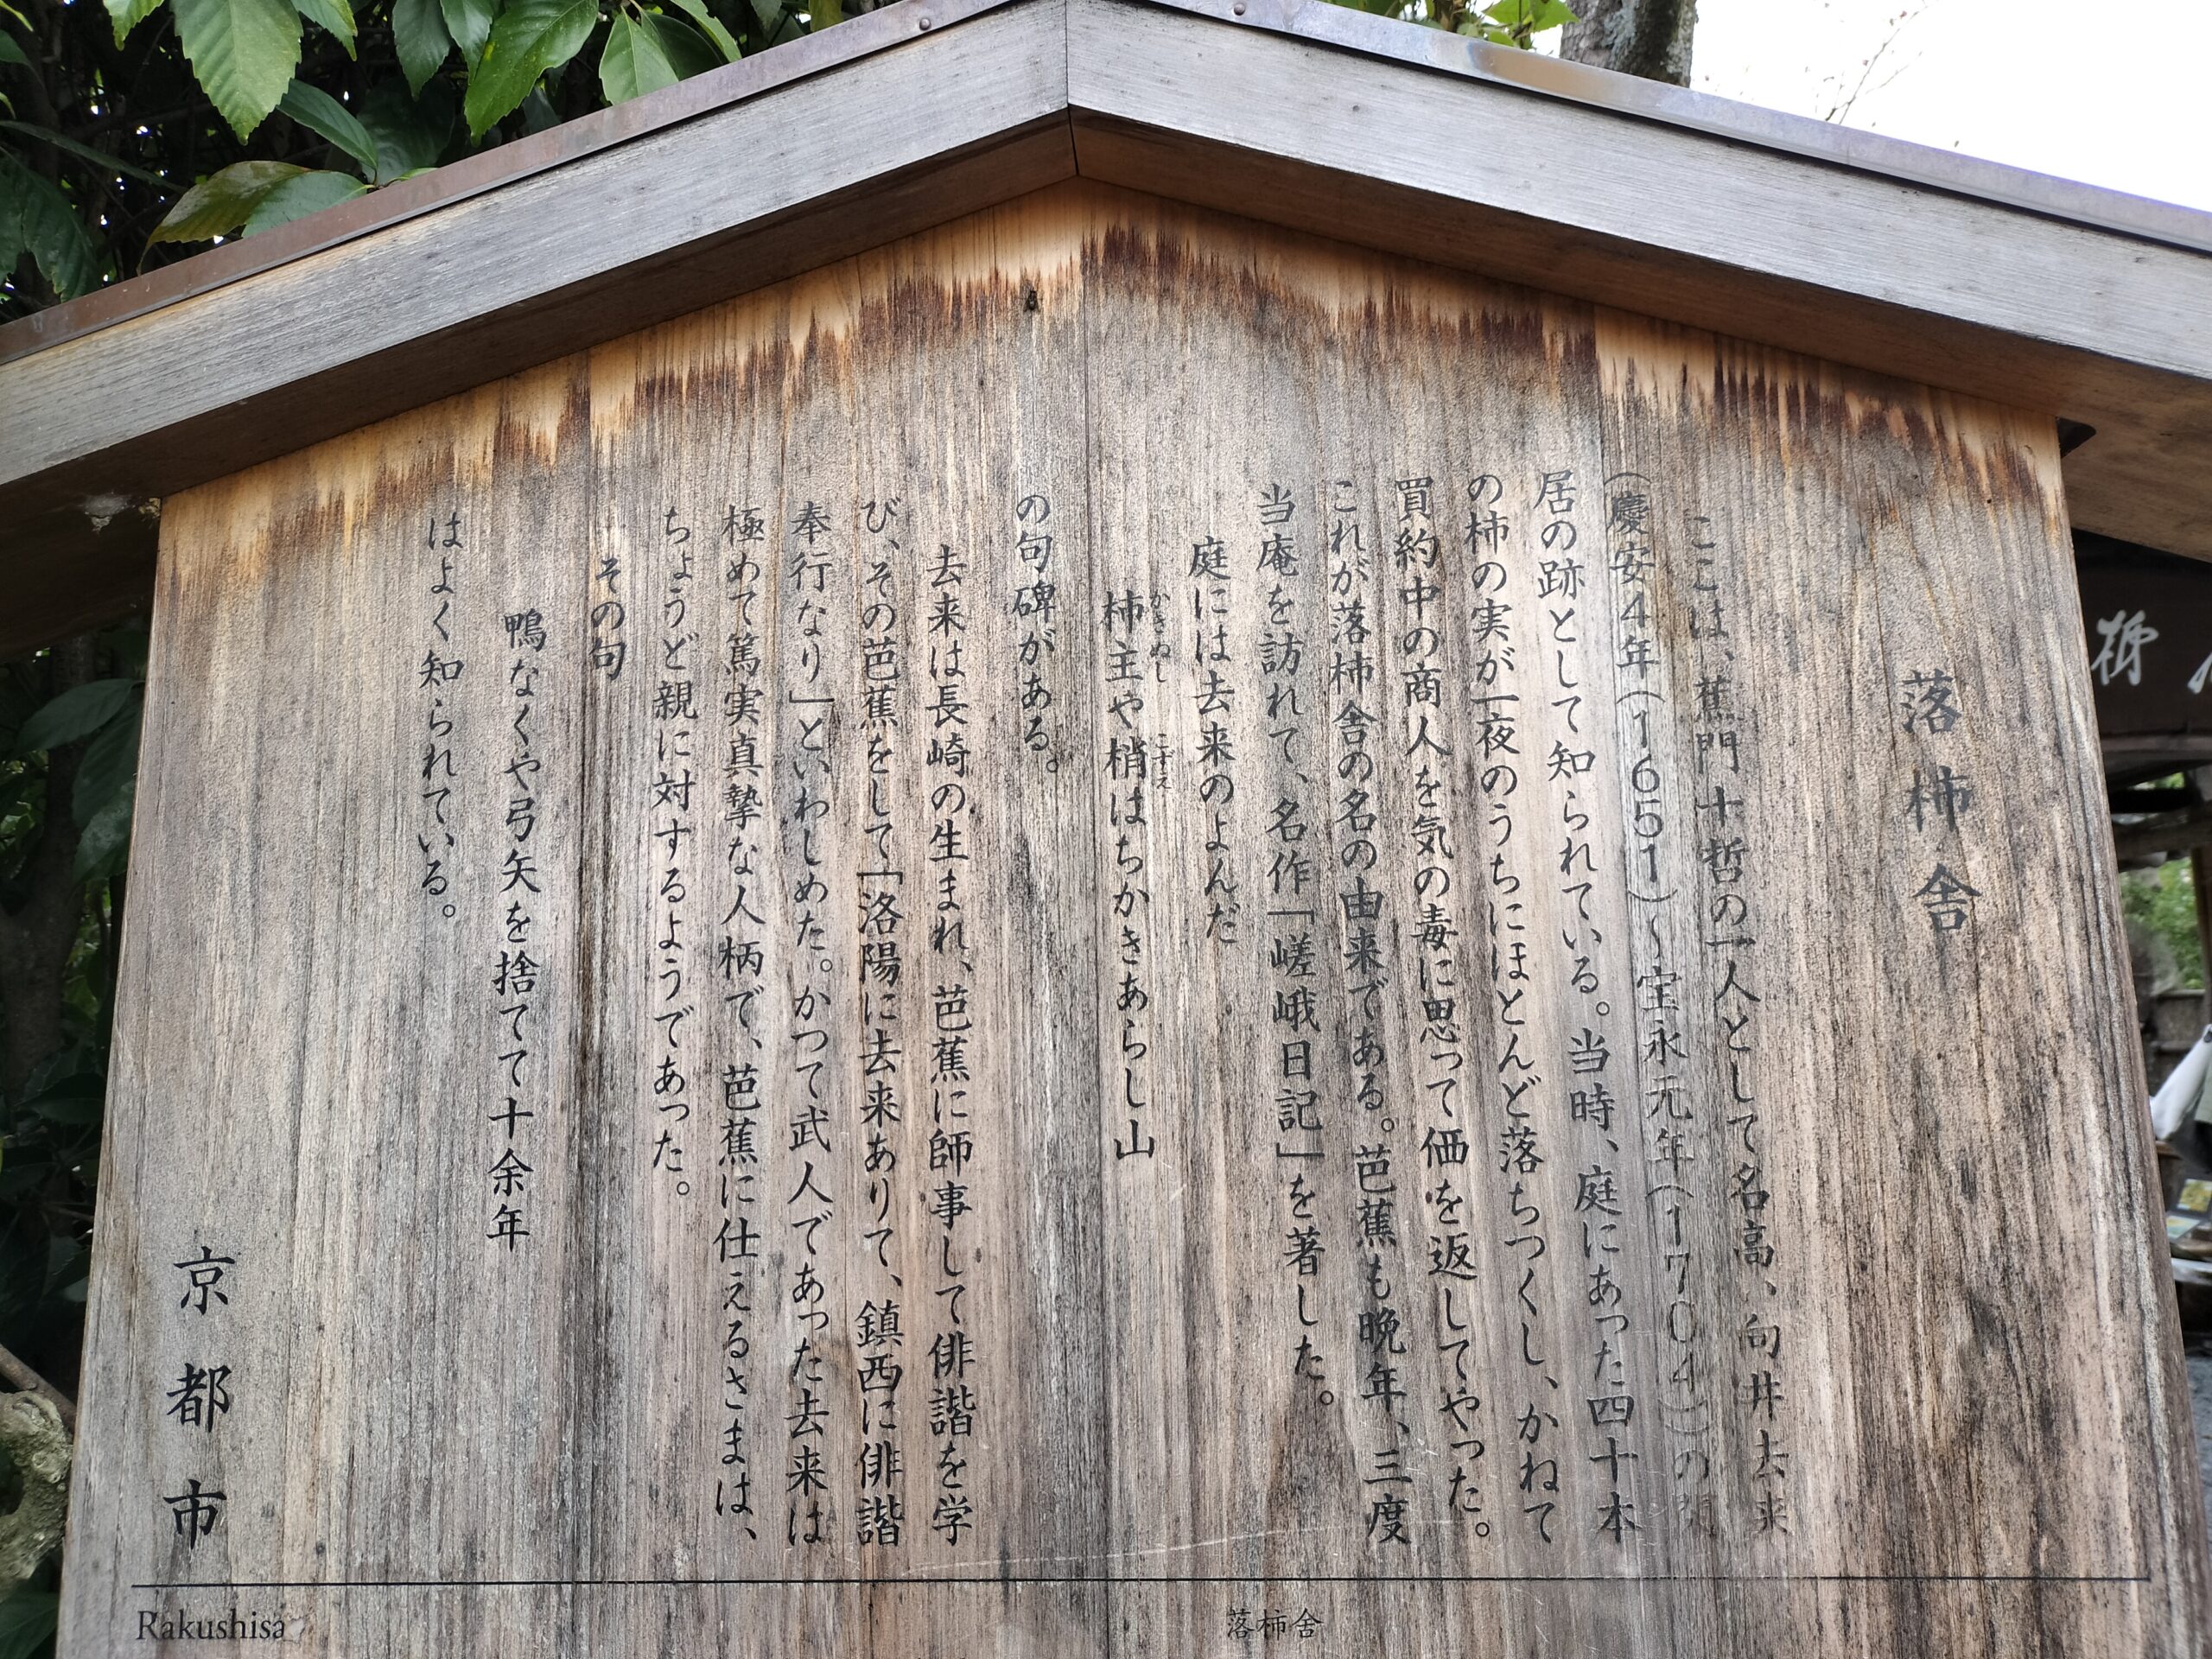 落柿舎
ここは、蕉門十哲の一人として名高い向井去来
(慶安4年(1651)~宝永元年(1704))の閑
居の跡として知られている。当時、庭にあった四十本
の柿の実が一夜のうちにほとんど落ちつくし、かねて
買約中の商人を気の毒に思って価を返してやった。
これが落柿舎の名の由来である。芭蕉も晩年、三度
当庵を訪れて、名作「嵯峨日記」を著した。
庭には去来のよんだ
柿主や梢はちかきあらし山
かきぬし
こずえ
の句碑がある。
去来は長崎の生まれ、芭蕉に師事して俳諧を学
び、その芭蕉をして「洛陽に去来ありて、鎮西に俳諧
奉行なり」といわしめた。かつて武人であった去来は
極めて篤実真摯な人柄で、芭蕉に仕えるさまは、
ちょうど親に対するようであった。
その句
鴨なくや弓矢を捨てて十余年
はよく知られている。
京都市
Rakushisa
落柿舎
柿